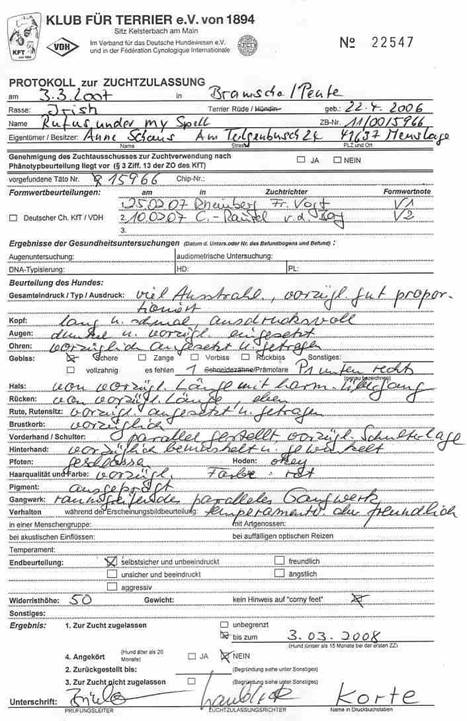 KLUB FÜR TERRIER e.V. von 1894
Sitz Kelsterbach am Main
Im Verband für das Deutsche Hundewesen e.V.
und in der Fédération Cynologique Internationale
KFT
VDH
№ 22547
PROTOKOLL zur ZUCHTZULASSUNG
am 3.3.2007 in Bramsche/Pente
Rasse: Irish Terrier Rüde / Hündin geb.: 22.4.2006
Name Rufus under my Spell ZB-Nr. 11/0015966
Eigentümer / Besitzer: Anne Schaus Am 49637 Menslage
Name Straße PLZ und Ort
Genehmigung des Zuchtausschusses zur Zuchtverwendung nach
Phänotypbeurteilung liegt vor (§ 3 Ziff. 13 der ZO des KfT) JA NEIN
vorgefundene Täto Nr. R 15966 Chip-Nr.:
Formwertbeurteilungen: am in Zuchtrichter Formwertnote
1. 25.02.07 Rheinberg Fr. Vogt V1
Deutscher Ch. KfT / VDH 2. 10.02.07 C.-Rauxel v.d. V2
3.
Ergebnisse der Gesundheitsuntersuchungen (Datum d. Unters. oder Nr. des Befundbogens und Befund) :
Augenuntersuchung: audiometrische Untersuchung:
DNA-Typisierung: HD: PL:
Beurteilung des Hundes:
Gesamteindruck / Typ / Ausdruck: viel Ausstrahl., vorzügl. gut propor-
tioniert
Kopf: lang u. schmal ausdrucksvoll
Augen: dunkel u. vorzügl. eingesetzt
Ohren: vorzüglich angesetzt u. getragen
Gebiss: Schere Zange Vorbiss Rückbiss Sonstiges:
vollzahnig es fehlen 1 Schneidezähne/Prämolare P1 unten rechts
Hals: von vorzügl. Länge mit harm. Übergang
Rücken: von vorzügl. Länge eben
Rute, Rutensitz: vorzügl. angesetzt u. getragen
Brustkorb: vorzüglich
Vorderhand / Schulter: parallel gestellt vorzügl. Schulterlage
Hinterhand: vorzüglich bemuskelt u. gewinkelt
Pfoten: geschlossen Hoden: okey
Haarqualität und Farbe: vorzügl. Farbe: rot
Pigment: ausgeprägt
Gangwerk: raumgreifendes paralleles Gangwerk
Verhalten während der Erscheinungsbildbeurteilung: temperamentv. aber freundlich
in einer Menschengruppe: mit Artgenossen:
bei akustischen Einflüssen: bei auffälligen optischen Reizen
Temperament:
Endbeurteilung: selbstsicher und unbeeindruckt freundlich
unsicher und beeindruckt ängstlich
aggressiv
Widerristhöhe: 50 Gewicht: kein Hinweis auf "corny feet"
Sonstiges:
Ergebnis: 1. Zur Zucht zugelassen unbegrenzt
bis zum 3.03.2008
(Hund jünger als 15 Monate bei der ersten ZZ)
4. Angekört (Hund älter als 20 Monate) JA NEIN
2. Zurückgestellt bis: (Begründung siehe unter Sonstiges)
3. Zur Zucht nicht zugelassen (Begründung siehe unter Sonstiges)
Unterschrift: Korte
PRÜFUNGSLEITER ZUCHTZULASSUNGSRICHTER Name in Druckbuchstaben